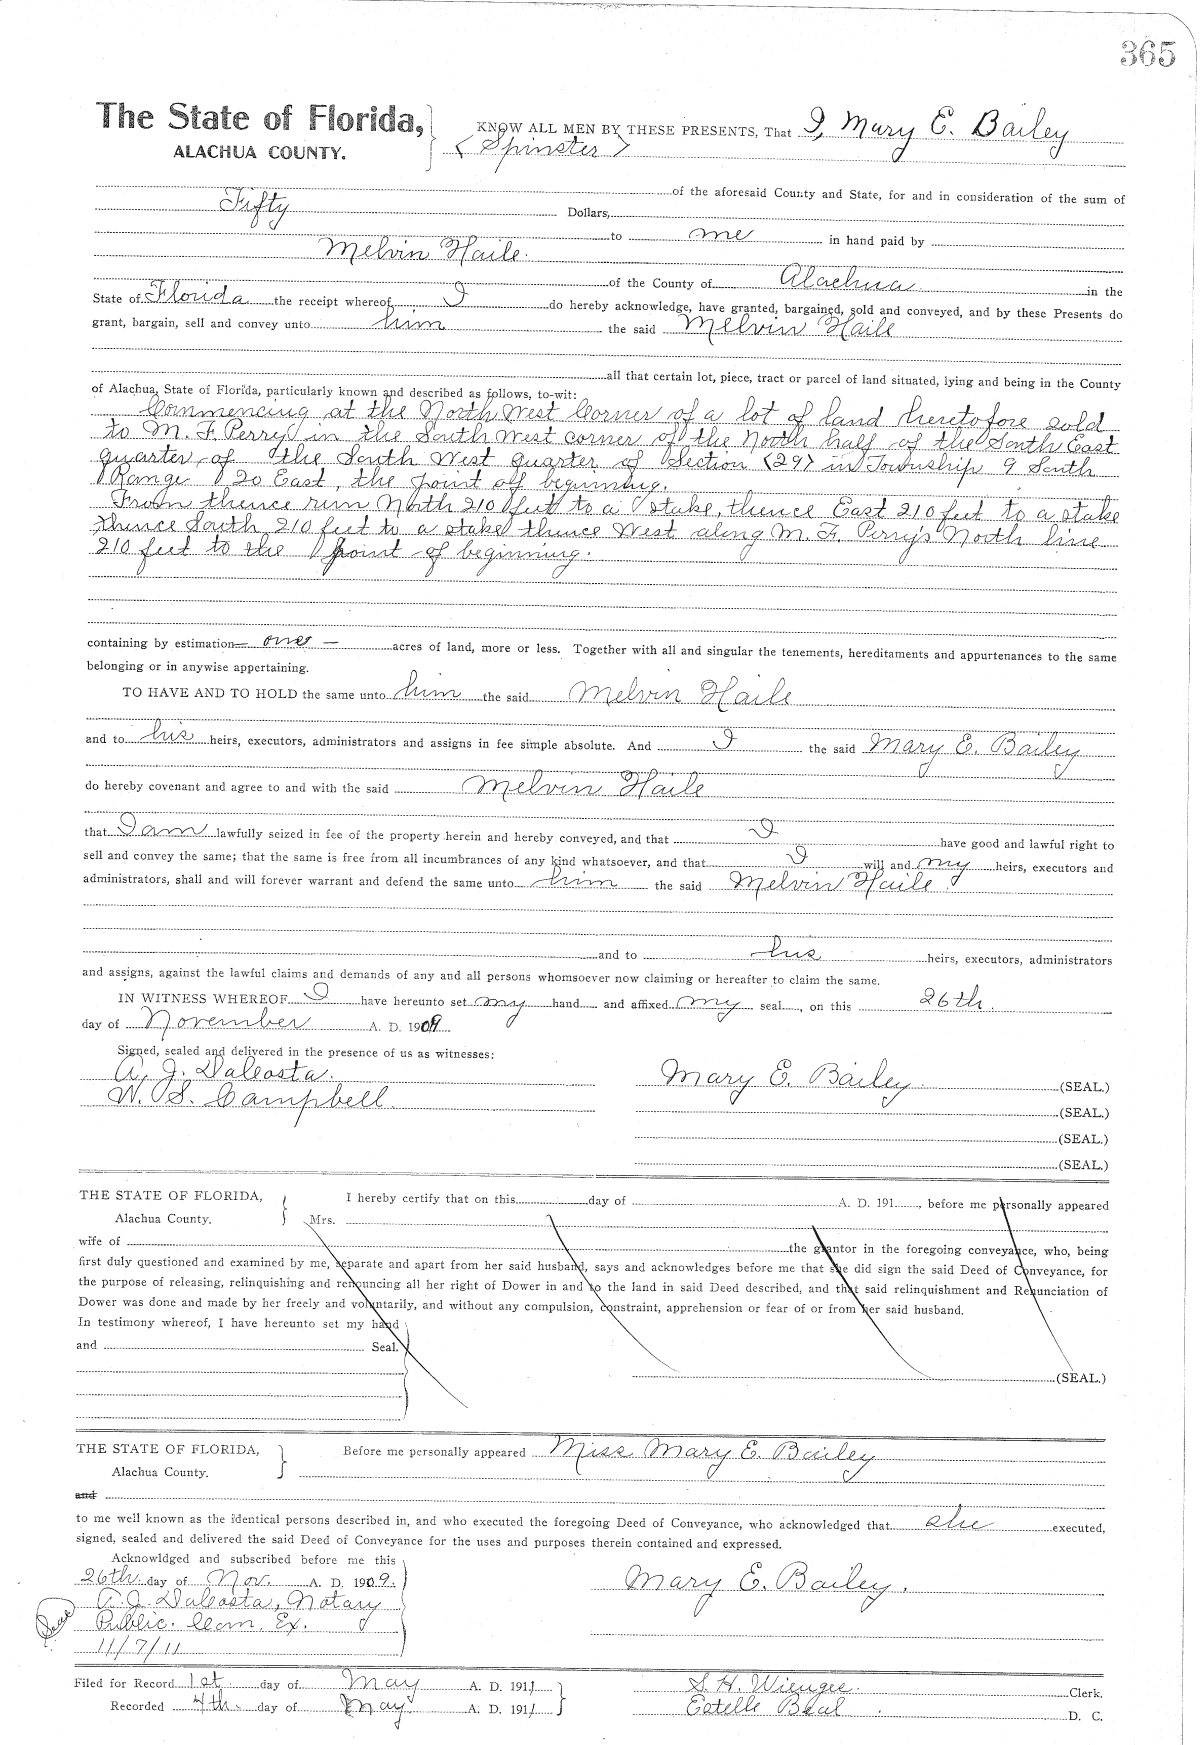 365
The State of Florida,
ALACHUA COUNTY.
KNOW ALL MEN BY THESE PRESENTS, That I, Mary E. Bailey
(Spinster)
of the aforesaid County and State, for and in consideration of the sum of
Fifty Dollars,
to me in hand paid by
Melvin Haile
of the County of Alachua in the
State of Florida the receipt whereof I do hereby acknowledge, have granted, bargained, sold and conveyed, and by these Presents do
grant, bargain, sell and convey unto him the said Melvin Haile
all that certain lot, piece, tract or parcel of land situated, lying and being in the County
of Alachua, State of Florida, particularly known and described as follows, to-wit:
Commencing at the North West Corner of a lot of land heretofore sold
to M. F. Perry in the South West corner of the North half of the South East
quarter of the South West quarter of Section (29) in Township 9 South
Range 20 East, the point of beginning.
From thence run North 210 feet to a stake, thence East 210 feet to a stake
thence South 210 feet to a stake thence West along M. F. Perry's North line
210 feet to the point of beginning.
containing by estimation— one — acres of land, more or less. Together with all and singular the tenements, hereditaments and appurtenances to the same
belonging or in anywise appertaining.
TO HAVE AND TO HOLD the same unto him the said Melvin Haile
and to his heirs, executors, administrators and assigns in fee simple absolute. And I the said Mary E. Bailey
do hereby covenant and agree to and with the said Melvin Haile
that I am lawfully seized in fee of the property herein and hereby conveyed, and that I have good and lawful right to
sell and convey the same; that the same is free from all incumbrances of any kind whatsoever, and that I will and my heirs, executors and
administrators, shall and will forever warrant and defend the same unto him the said Melvin Haile
and to his heirs, executors, administrators
and assigns, against the lawful claims and demands of any and all persons whomsoever now claiming or hereafter to claim the same.
IN WITNESS WHEREOF I have hereunto set my hand and affixed my seal, on this 26th.
day of November A. D. 1909
Signed, sealed and delivered in the presence of us as witnesses:
A. J. DaCosta.
Mary E. Bailey (SEAL.)
W. S. Campbell.
(SEAL.)
(SEAL.)
(SEAL.)
THE STATE OF FLORIDA,
Alachua County.
I hereby certify that on this day of A. D. 191 , before me personally appeared
Mrs.
wife of the grantor in the foregoing conveyance, who, being
first duly questioned and examined by me, separate and apart from her said husband, says and acknowledges before me that she did sign the said Deed of Conveyance, for
the purpose of releasing, relinquishing and renouncing all her right of Dower in and to the land in said Deed described, and that said relinquishment and Renunciation of
Dower was done and made by her freely and voluntarily, and without any compulsion, constraint, apprehension or fear of or from her said husband.
In testimony whereof, I have hereunto set my hand
and Seal.
(SEAL.)
THE STATE OF FLORIDA,
Alachua County.
Before me personally appeared Miss Mary E. Bailey
and
to me well known as the identical persons described in, and who executed the foregoing Deed of Conveyance, who acknowledged that she executed,
signed, sealed and delivered the said Deed of Conveyance for the uses and purposes therein contained and expressed.
Acknowldged and subscribed before me this
26th day of Nov. A. D. 1909.
Mary E. Bailey.
A. J. DaCosta, Notary
Public. Com. Ex.
11/7/11
Seal
Filed for Record 1st day of May A. D. 1911
S. H. Wienges. Clerk.
Recorded 4th day of May A. D. 1911
Estelle Beal D. C.